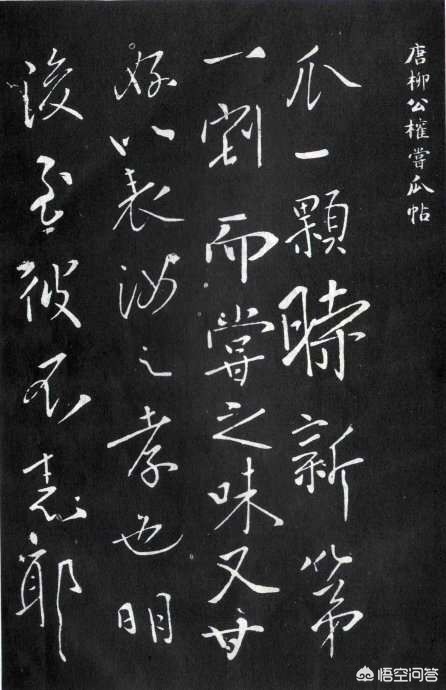 唐柳公權嘗瓜帖
瓜一顆時新第
一割而嘗之味又甘
好以表汝之孝也明
後至彼不
悟空问答